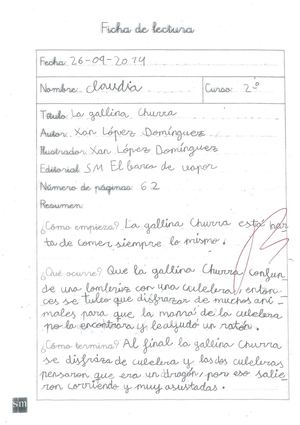 Ficha de lectura
Fecha: 26-09-2014
Nombre: claudia
Curso: 2º
Título: La gallina Churra
Autor: Xan López Domínguez
Ilustrador: Xan López Domínguez
Editorial: SM El barco de vapor
Número de páginas: 62
Resumen:
¿Cómo empieza? La gallina Churra está har
ta de comer siempre lo mismo.
¿Qué ocurre? Que la gallina Churra confun
de una lombriz con una culebra, enton
ces se tubo que disfrazar de muchos ani
males para que la mamá de la culebra
no la encontrara y le ayudó un ratón.
¿Cómo termina? Al final la gallina Churra
se disfraza de culebra y las dos culebras
pensaron que era un dragón, por eso salie
ron corriendo y muy asustadas.
sm